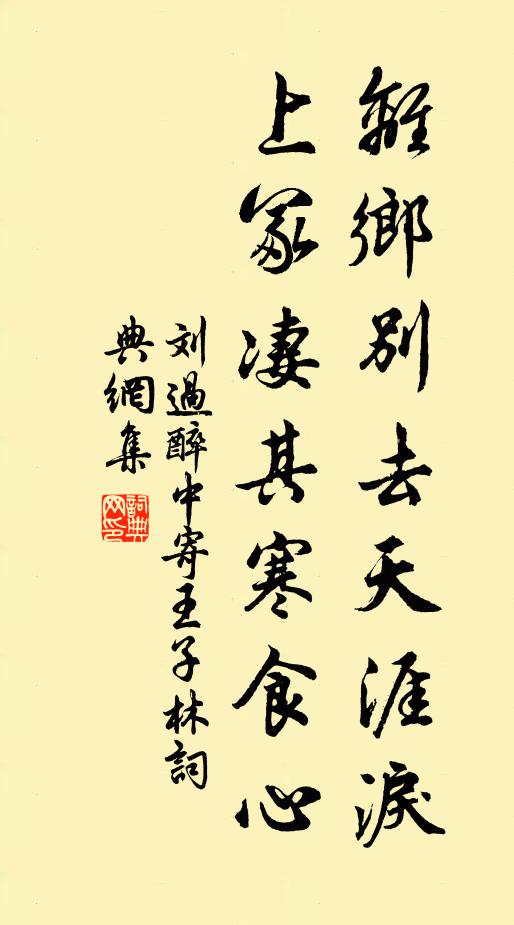 離鄉別去天涯淚
上冢凄其寒食心
刘過醉中寄王子林詞
典網集
詞典
网印